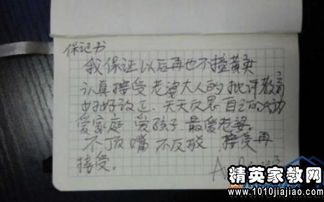 保证书
我保证以后再也不撞黄灾
认真接受老婆大人的批评教育
好好改正 天天反思自己的行动
爱家庭 爱孩子 最爱老婆
不顶嘴 不反驳 接受再
接受。
精英家教网
www.1010jiajiao.com